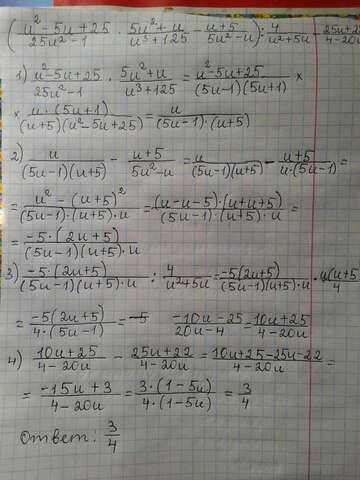 ( u² - 5u + 25 / 25u² - 1 · 5u² + u / u³ + 125 - u + 5 / 5u² - u ) : 4 / u² + 5u - 25u + 2 / 4 - 20
1) u² - 5u + 25 / 25u² - 1 · 5u² + u / u³ + 125 = u² - 5u + 25 / (5u - 1)(5u + 1) ×
× u · (5u + 1) / (u + 5)(u² - 5u + 25) = u / (5u - 1) · (u + 5)
2) u / (5u - 1)(u + 5) - u + 5 / 5u² - u = u / (5u - 1)(u + 5) - u + 5 / u · (5u - 1) =
= u² - (u + 5)² / (5u - 1) · (u + 5) · u = (u - u - 5) · (u + u + 5) / (5u - 1) · (u + 5) · u =
= -5 · (2u + 5) / (5u - 1)(u + 5) · u
3) -5 · (2u + 5) / (5u - 1)(u + 5) · u : 4 / u² + 5u = -5(2u + 5) / (5u - 1)(u + 5) · u · u(u + 5) / 4
= -5(2u + 5) / 4 · (5u - 1) = -10u - 25 / 20u - 4 = 10u + 25 / 4 - 20u
4) 10u + 25 / 4 - 20u - 25u + 22 / 4 - 20u = 10u + 25 - 25u - 22 / 4 - 20u =
= -15u + 3 / 4 - 20u = 3 · (1 - 5u) / 4 · (1 - 5u) = 3 / 4
Ответ: 3 / 4